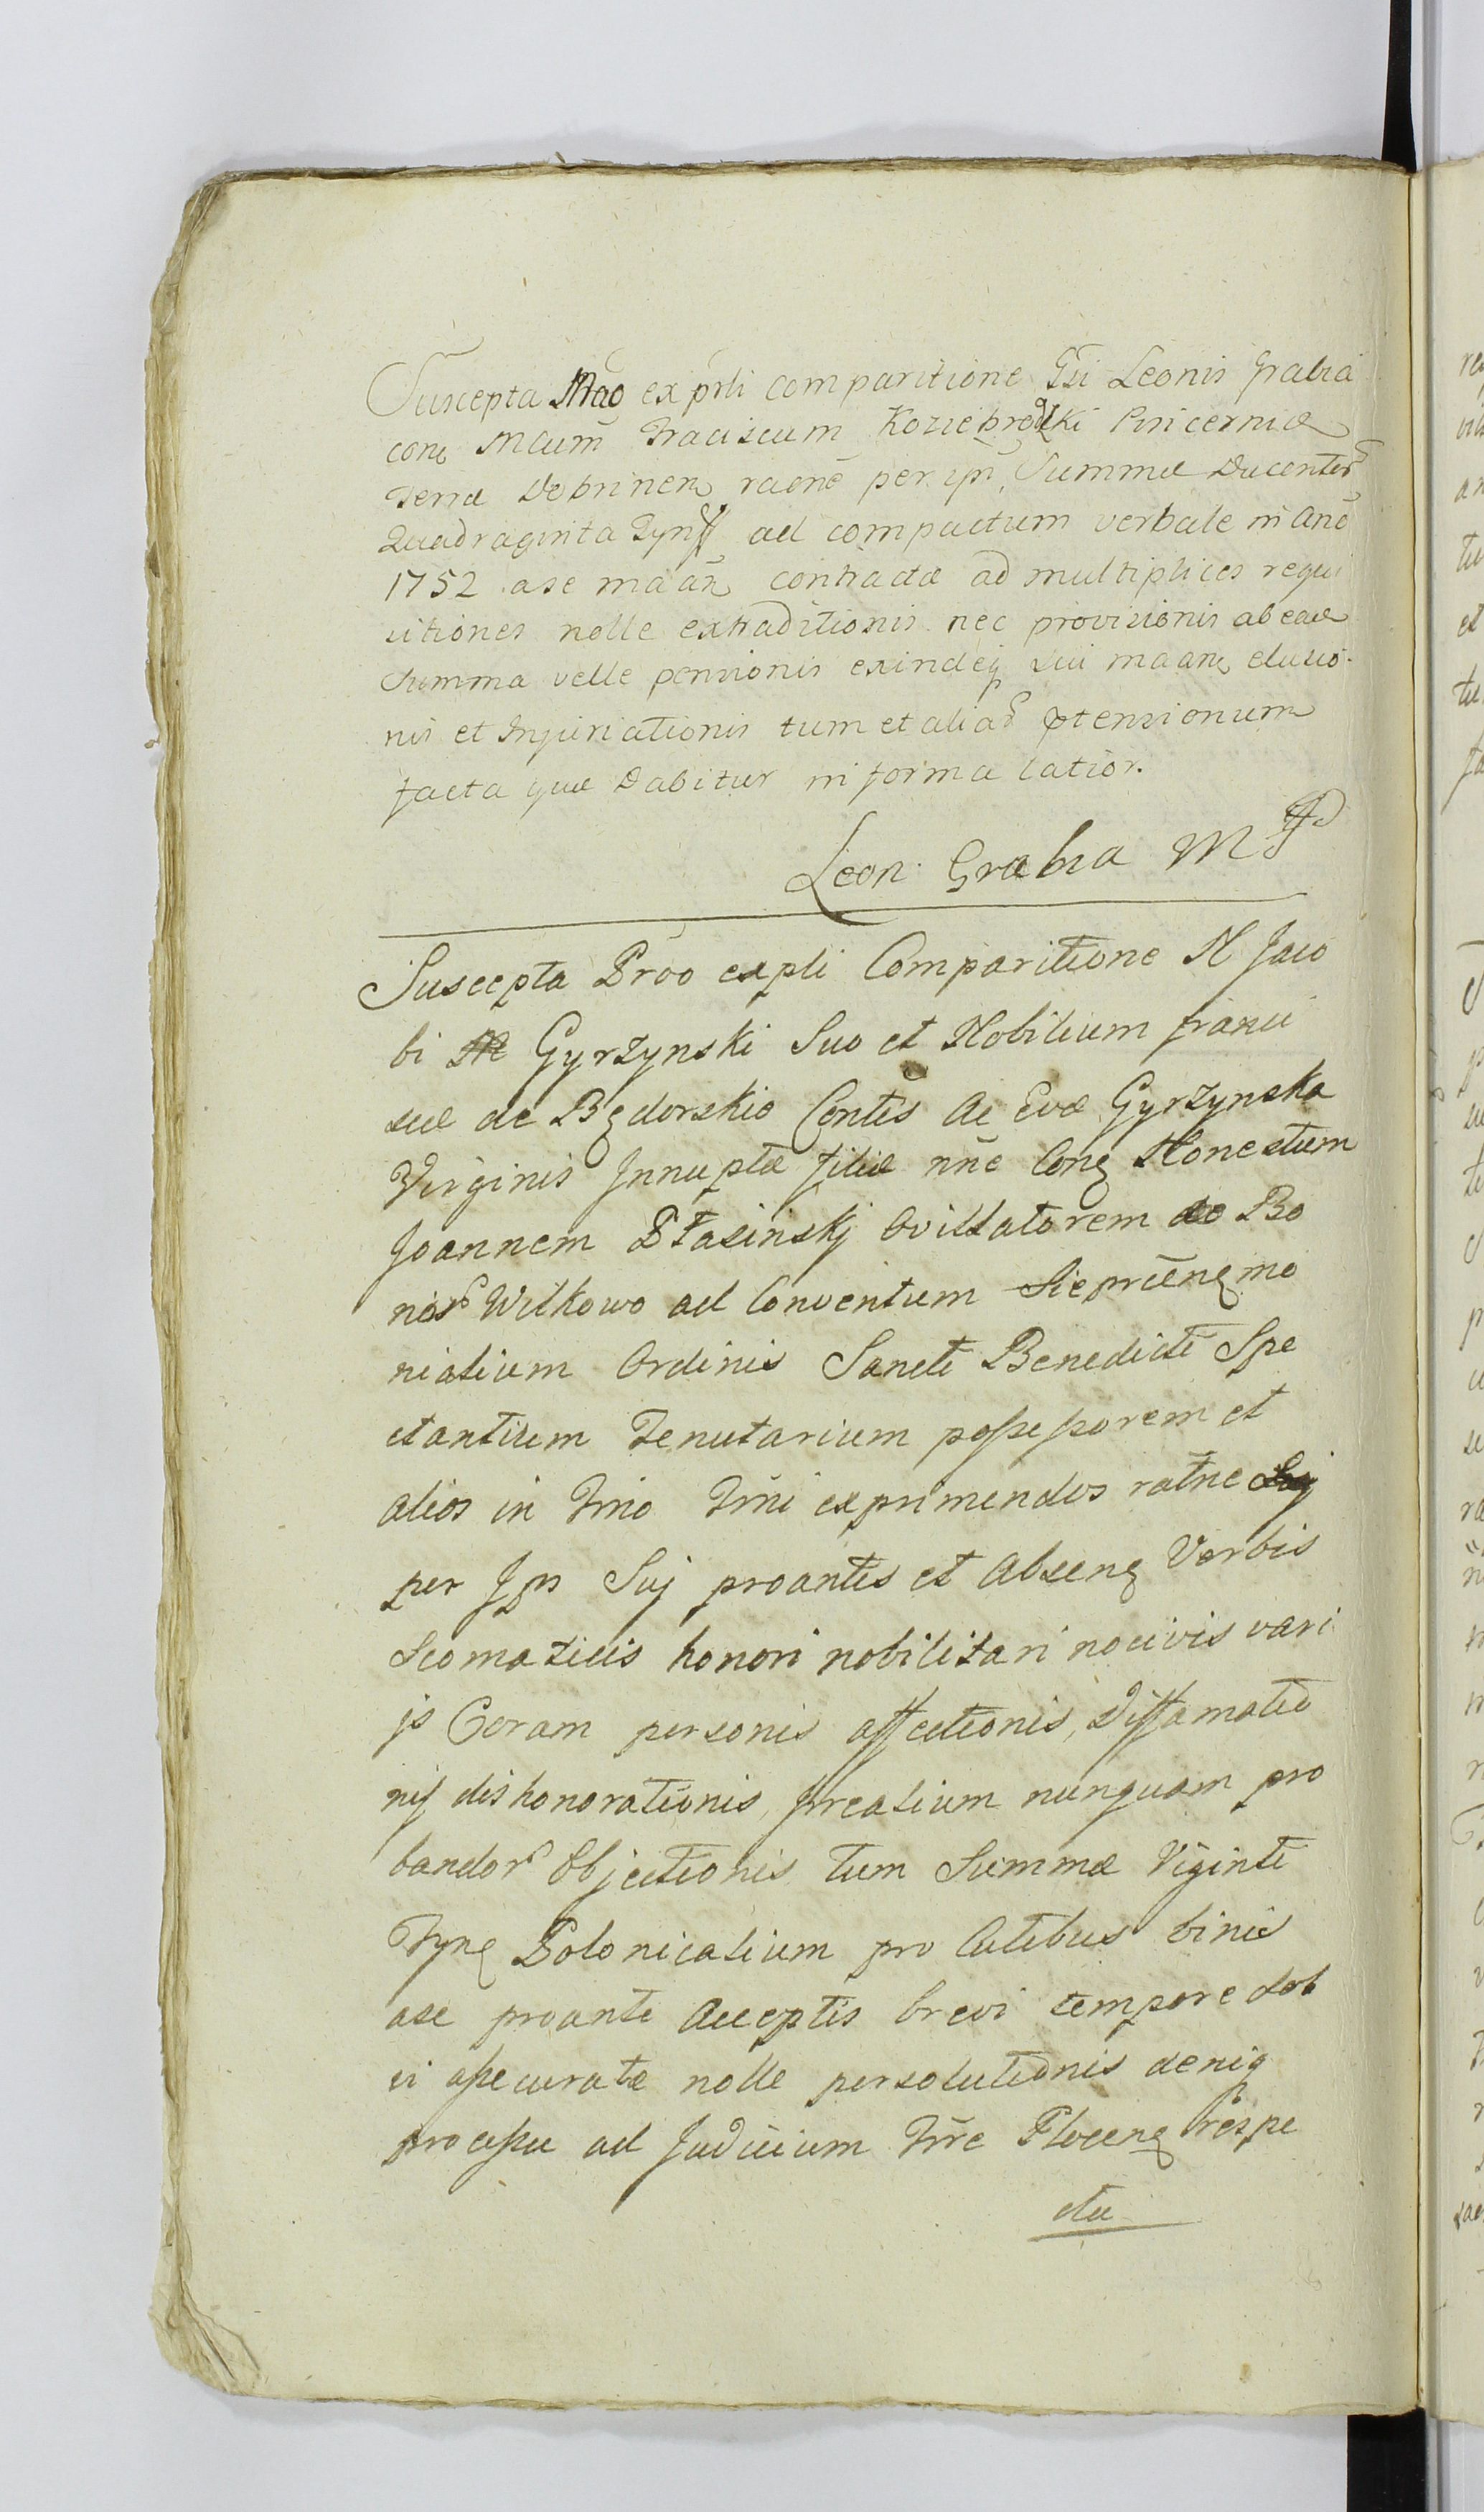 Suscepta Mãõ ex prli comparitione Gsi Leonis Grabia
con Mcum Fraciscum Koziebrodzki Pincernia
Terræ Dobrinen raone per ipm Summæ Ducentor
Quadraginta Tynff ad compactum verbale in Ano
1752 a se maan contractæ ad multiplices requi
sitiones nolle extraditionis nec provisionis ab eade
Summa velle pensionis exindeq sui maan elusio
nis et Injuriationis tum et aliar ptensionum
facta quæ Dabitur in forma latior.
Leon Grabia Mp
Suscepta Proo expli Comparitione N Jaco
bi Gyrzynski Suo et Nobilium franci
scæ de Będorskie Contis ac Evæ Gyrzynska
Virginis Innuptæ filiæ nne Conq Honestum
Joannem Płasinskj Ovillatorem de Bo
nor Wilkowo ad Conventum Sieprcenq mo
nialium Ordinis Sancti Benedicti Spe
ctantium Tenutarium possessorem et
alios in Trno Trni exprimendos ratne
per Ips Suj proantis et Absenq Verbis
Scomaticis honori nobilitari nocivis vari
js Coram personis affectionis, Diffamatio
nis dishonorationis, furcalium nunquam pro
bandor Objectionis tum Summæ Viginti
Tynq Polonicalium pro Cutibus binis
a se proante Acceptis brevi tempore dob
ri assecuratæ nolle persolutionis deniq
processu ad Judicium Trre Plocenq respe
ctu